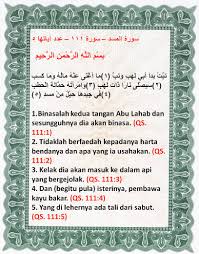 سورة المسد – سورة ١١١ – عدد آياتها ٥
بِسْمِ اللَّهِ الرَّحْمَنِ الرَّحِيمِ
تَبَّتْ يَدَا أَبِي لَهَبٍ وَتَبَّ (١) مَا أَغْنَى عَنْهُ مَالُهُ وَمَا كَسَبَ (٢)
سَيَصْلَى نَارًا ذَاتَ لَهَبٍ (٣) وَامْرَأَتُهُ حَمَّالَةَ الْحَطَبِ
(٤) فِي جِيدِهَا حَبْلٌ مِنْ مَسَدٍ (٥)
1.Binasalah kedua tangan Abu Lahab dan
sesungguhnya dia akan binasa. (QS.
111:1)
2. Tidaklah berfaedah kepadanya harta
bendanya dan apa yang ia usahakan. (QS.
111:2)
3. Kelak dia akan masuk ke dalam api
yang bergejolak. (QS. 111:3)
4. Dan (begitu pula) isterinya, pembawa
kayu bakar. (QS. 111:4)
5. Yang di lehernya ada tali dari sabut.
(QS. 111:5)